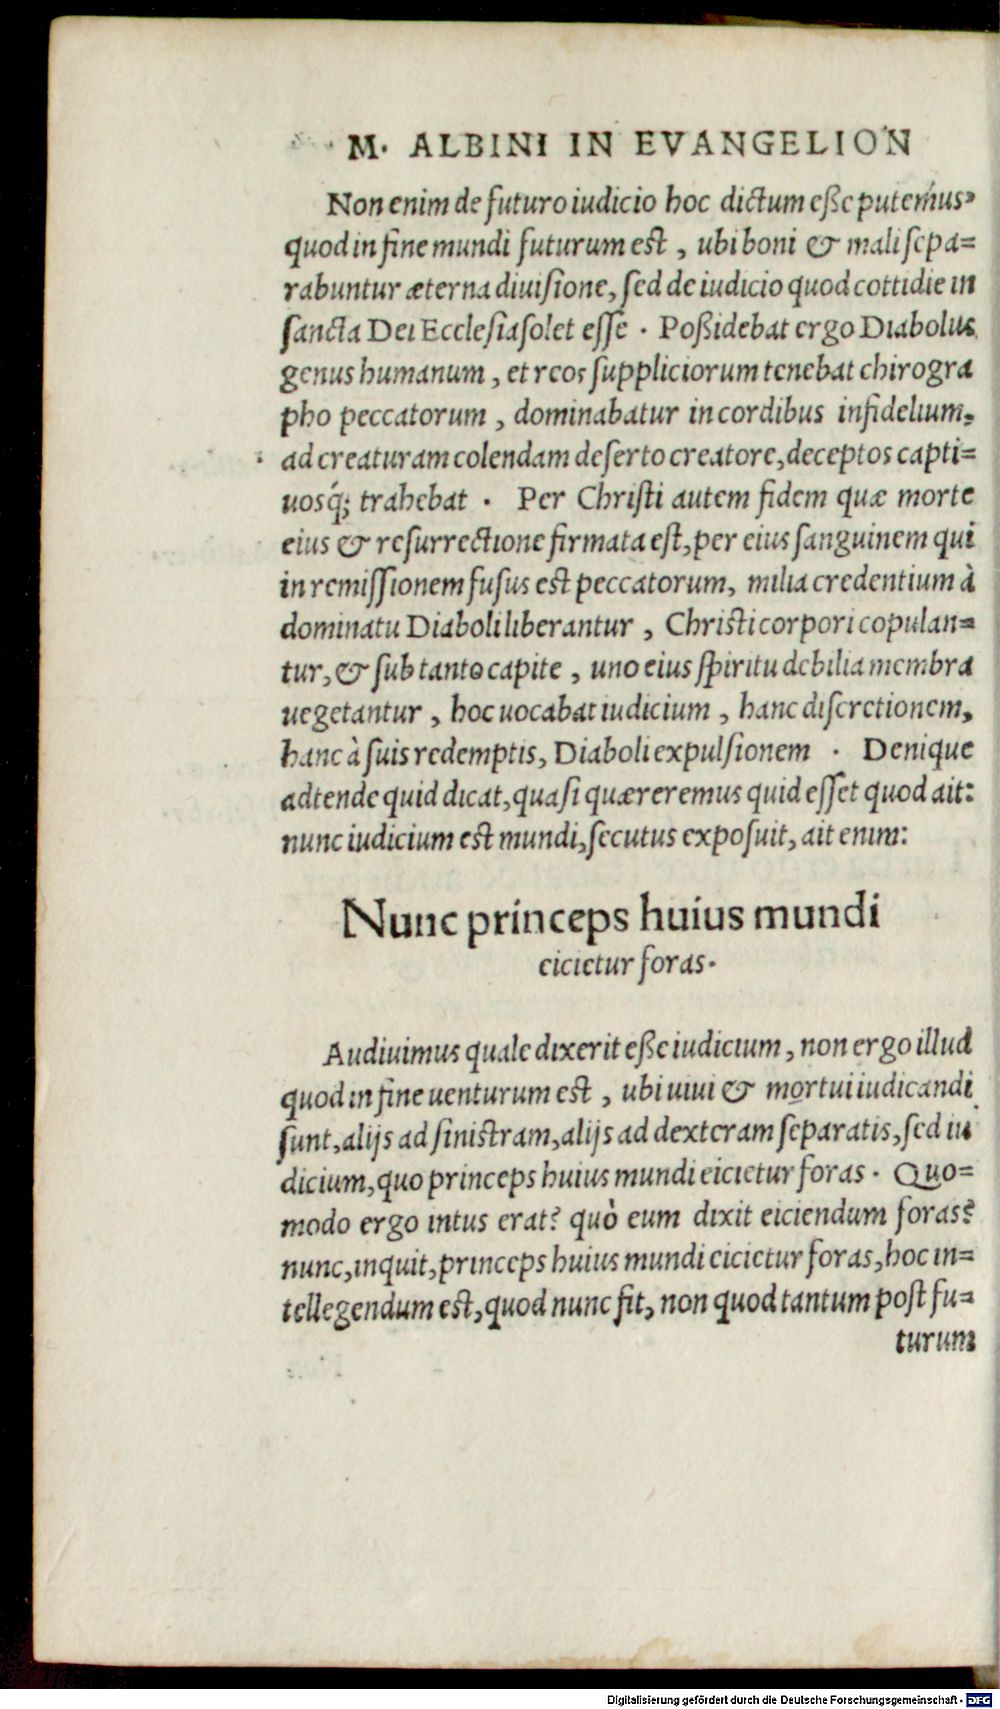 M. ALBINI IN EVANGELION
Non enim de futuro iudicio hoc dictum eße putemus,
quod in fine mundi futurum est, ubi boni & mali sepa=
rabuntur æterna diuisione, sed de iudicio quod cottidie in
sancta Dei Ecclesia solet esse. Poßidebat ergo Diabolus
genus humanum, et reos suppliciorum tenebat chirogra
pho peccatorum, dominabatur in cordibus infidelium,
ad creaturam colendam deserto creatore, deceptos capti=
uosq́; trahebat. Per Christi autem fidem quæ morte
eius & resurrectione firmata est, per eius sanguinem qui
in remissionem fusus est peccatorum, milia credentium à
dominatu Diaboli liberantur, Christi corpori copulan=
tur, & sub tanto capite, uno eius spiritu debilia membra
uegetantur, hoc uocabat iudicium, hanc discretionem,
hanc à suis redemptis, Diaboli expulsionem. Denique
adtende quid dicat, quasi quæreremus quid esset quod ait:
nunc iudicium est mundi, secutus exposuit, ait enim:
Nunc princeps huius mundi
eicietur foras.
Audiuimus quale dixerit eße iudicium, non ergo illud
quod in fine uenturum est, ubi uiui & mortui iudicandi
sunt, alijs ad sinistram, alijs ad dexteram separatis, sed iu
dicium, quo princeps huius mundi eicietur foras. Quo=
modo ergo intus erat? quò eum dixit eiciendum foras?
nunc, inquit, princeps huius mundi eicietur foras, hoc in=
tellegendum est, quod nunc fit, non quod tantum post fu=
turum
Digitalisierung gefördert durch die Deutsche Forschungsgemeinschaft - DFG